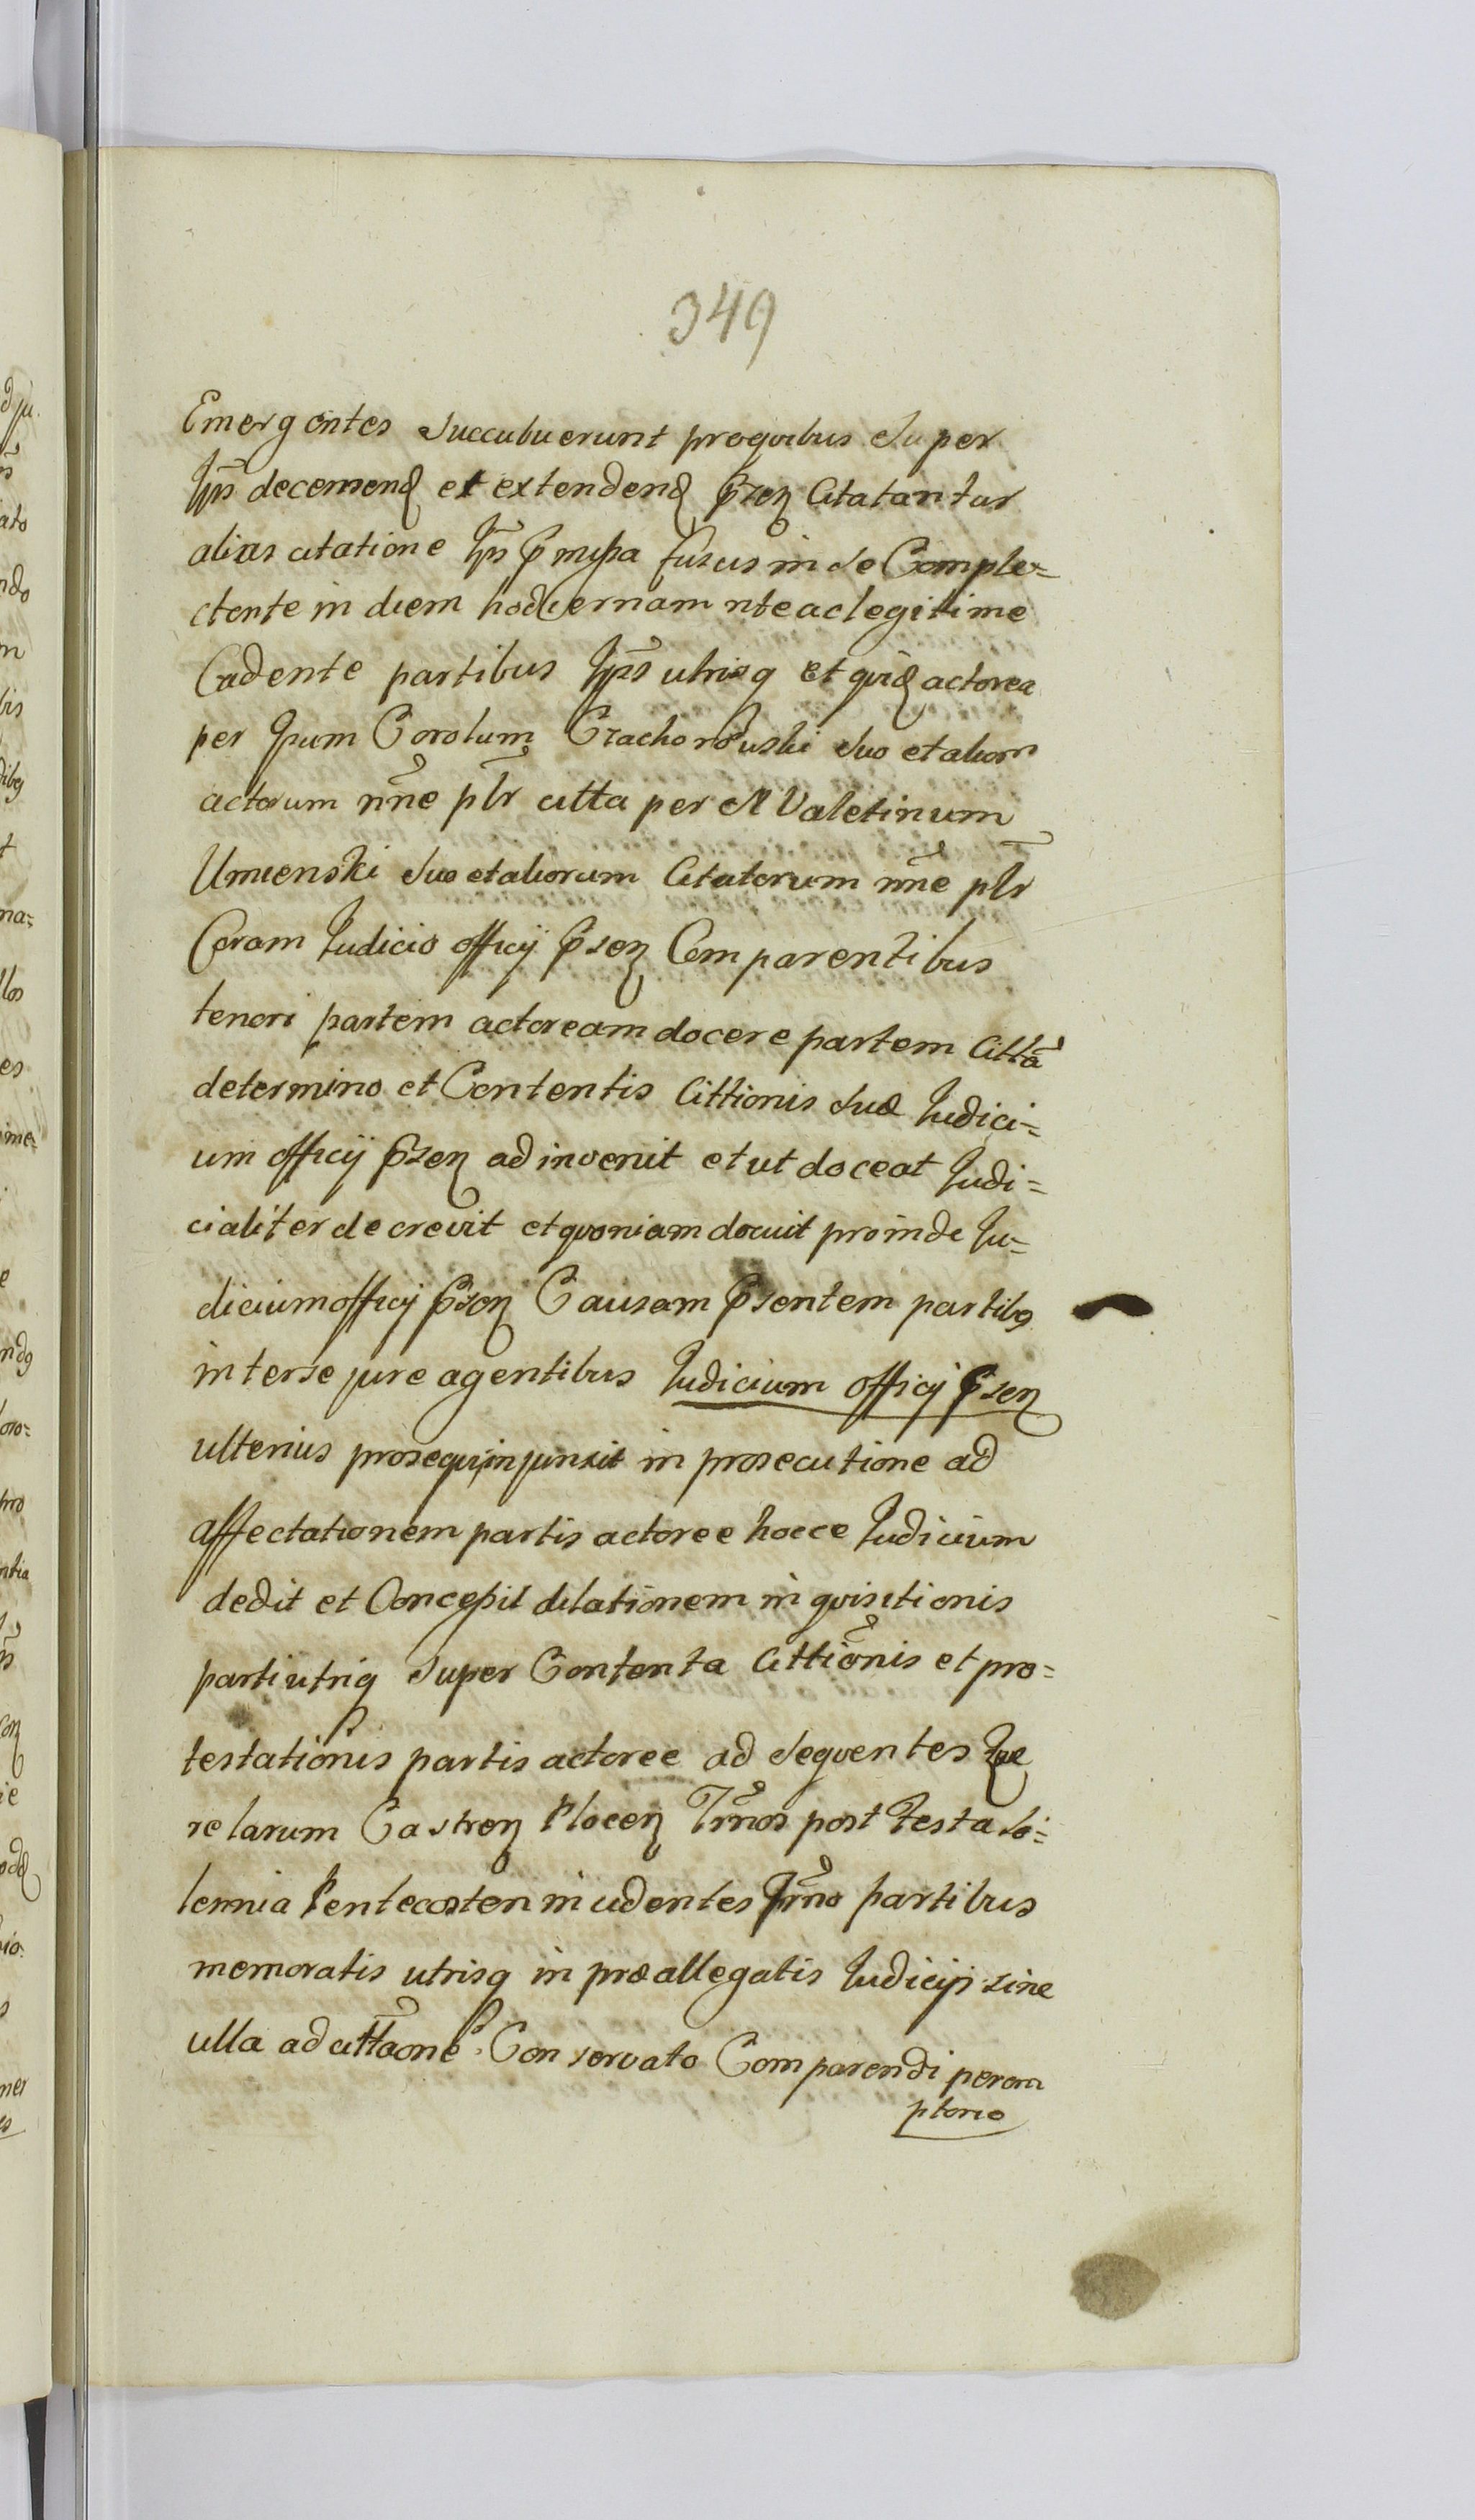 349
Emergentes succubuerunt proqvibus super
Ipsis decernend et extendend Prsen Citatantur
alias citatione Ipsis Pmissa fusius in se Comple=
ctente in diem hodiernam rite ac legitime
Cadente partibus Ipsis utrisq et qvid actorea
per Ipsum Carolum Czachorowski suo et alior
actorum nne plr citta per M Valetinum
Umienski suo et aliorum Citatorum nne plr
Coram Iudicio officij Prsen Comparentibus
teneri partem actoream docere partem Citta
de termino et Contentis Cittionis suæ Iudici=
um officij Prsen adinvenit et ut doceat Iudi=
cialiter decrevit et qvoniam docuit proinde Iu=
dicium officij Prsen Causam Psentem partibs
inter se jure agentibus Iudicium officij Prsen
ulterius proseqvi injunxit in prosecutione ad
affectationem partis actoree hocce Iudicium
dedit et Concessit dilationem inqvisitionis
parti utriq super Contenta Cittionis et pro=
testationis partis actoree ad seqventes Qve
relarum Castren Plocen Trnos post Festa So=
lennia Pentecosten incidentes Trno partibus
memoratis utrisq in præallegatis Iudicijs sine
ulla adcittaone Conservato Comparendi perem
ptorio